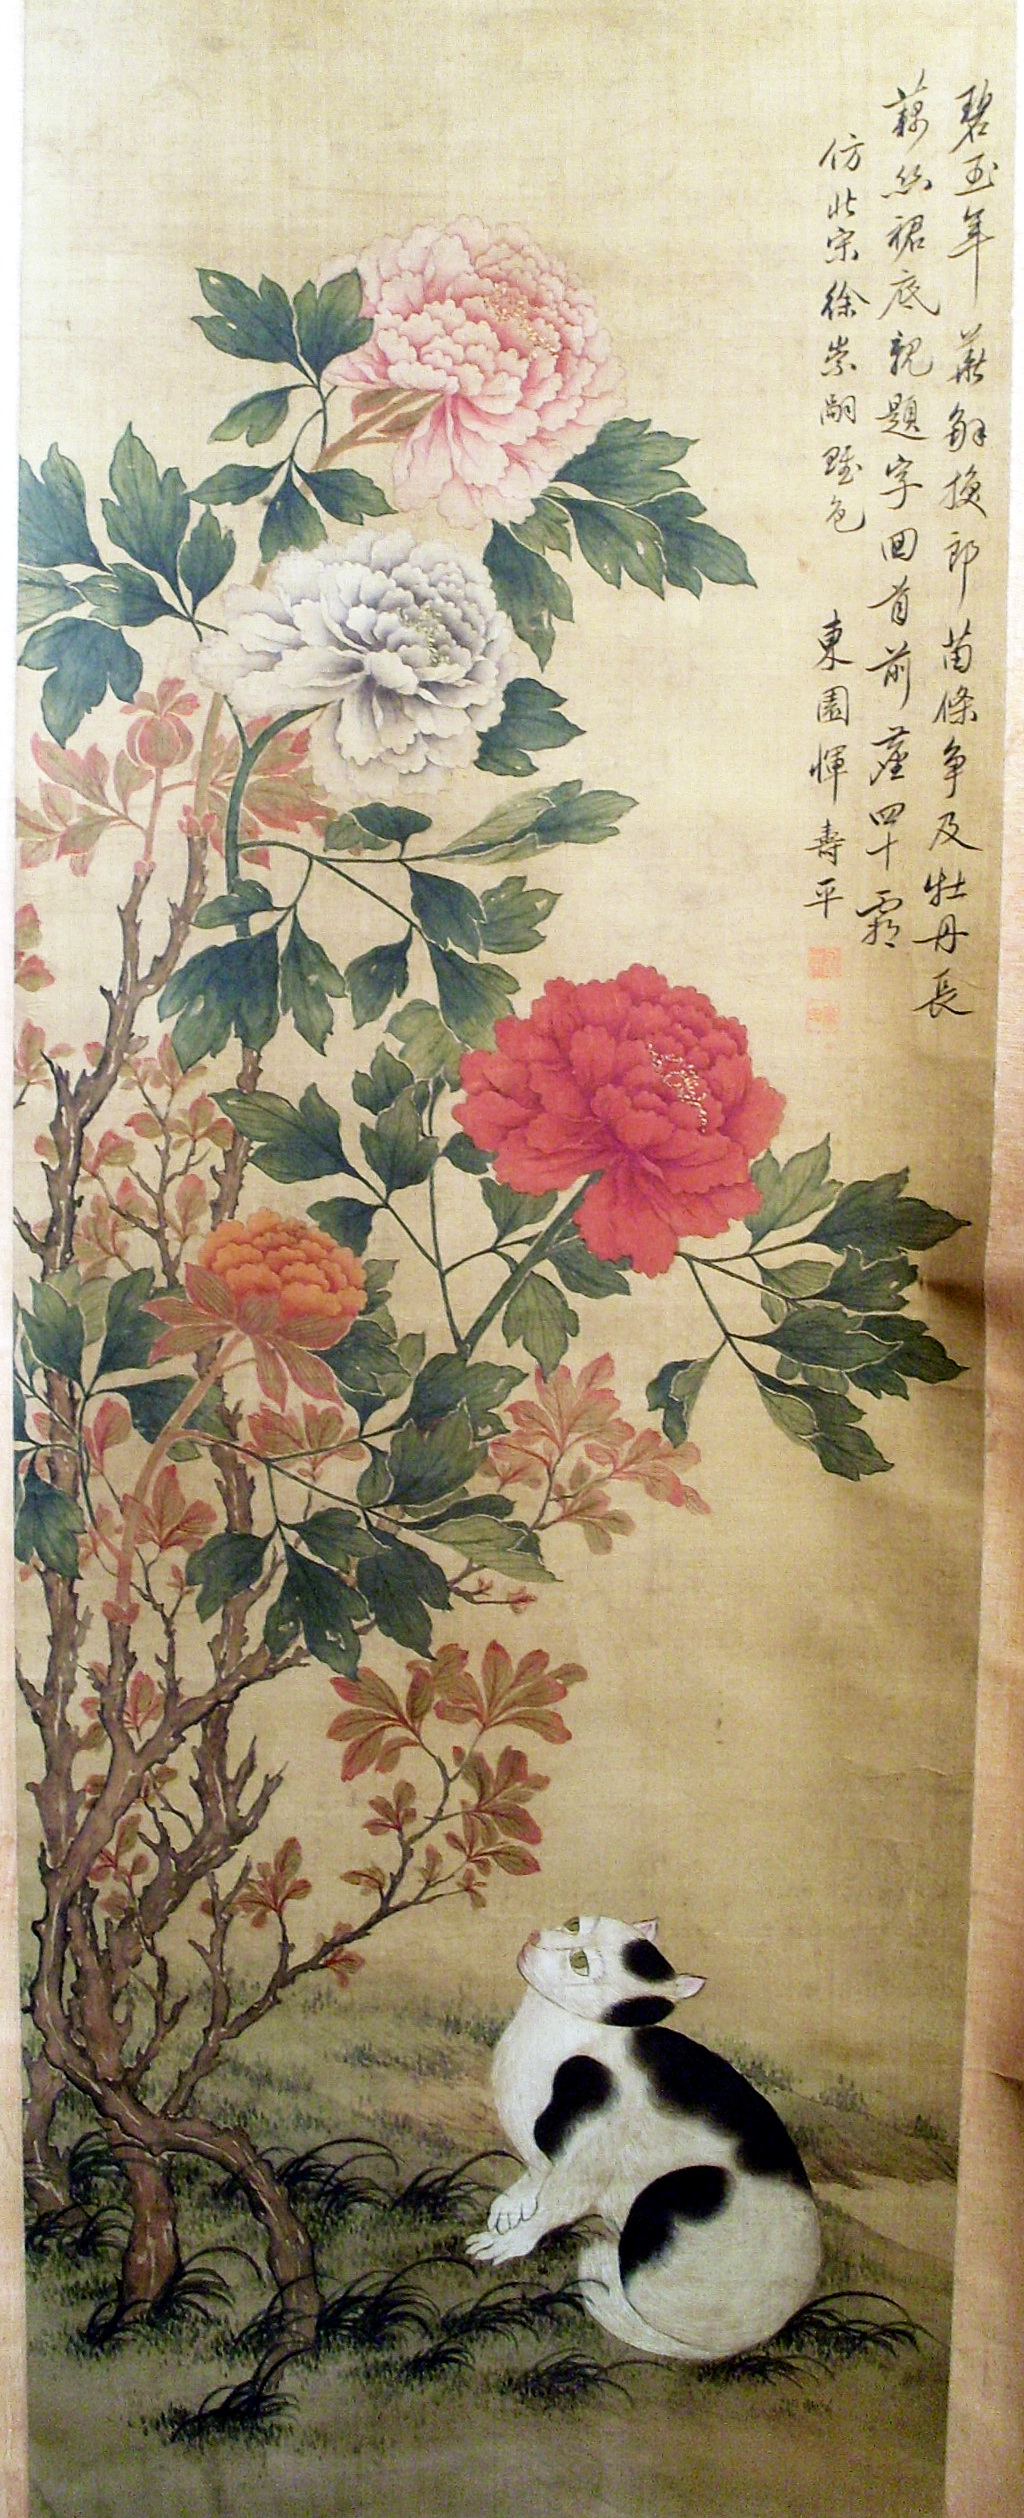 碧玉年華解換郎苗條爭及牡丹長
藕絲裙底親題字回首前塵四十霜
仿北宋徐崇嗣賦色
東園惲壽平